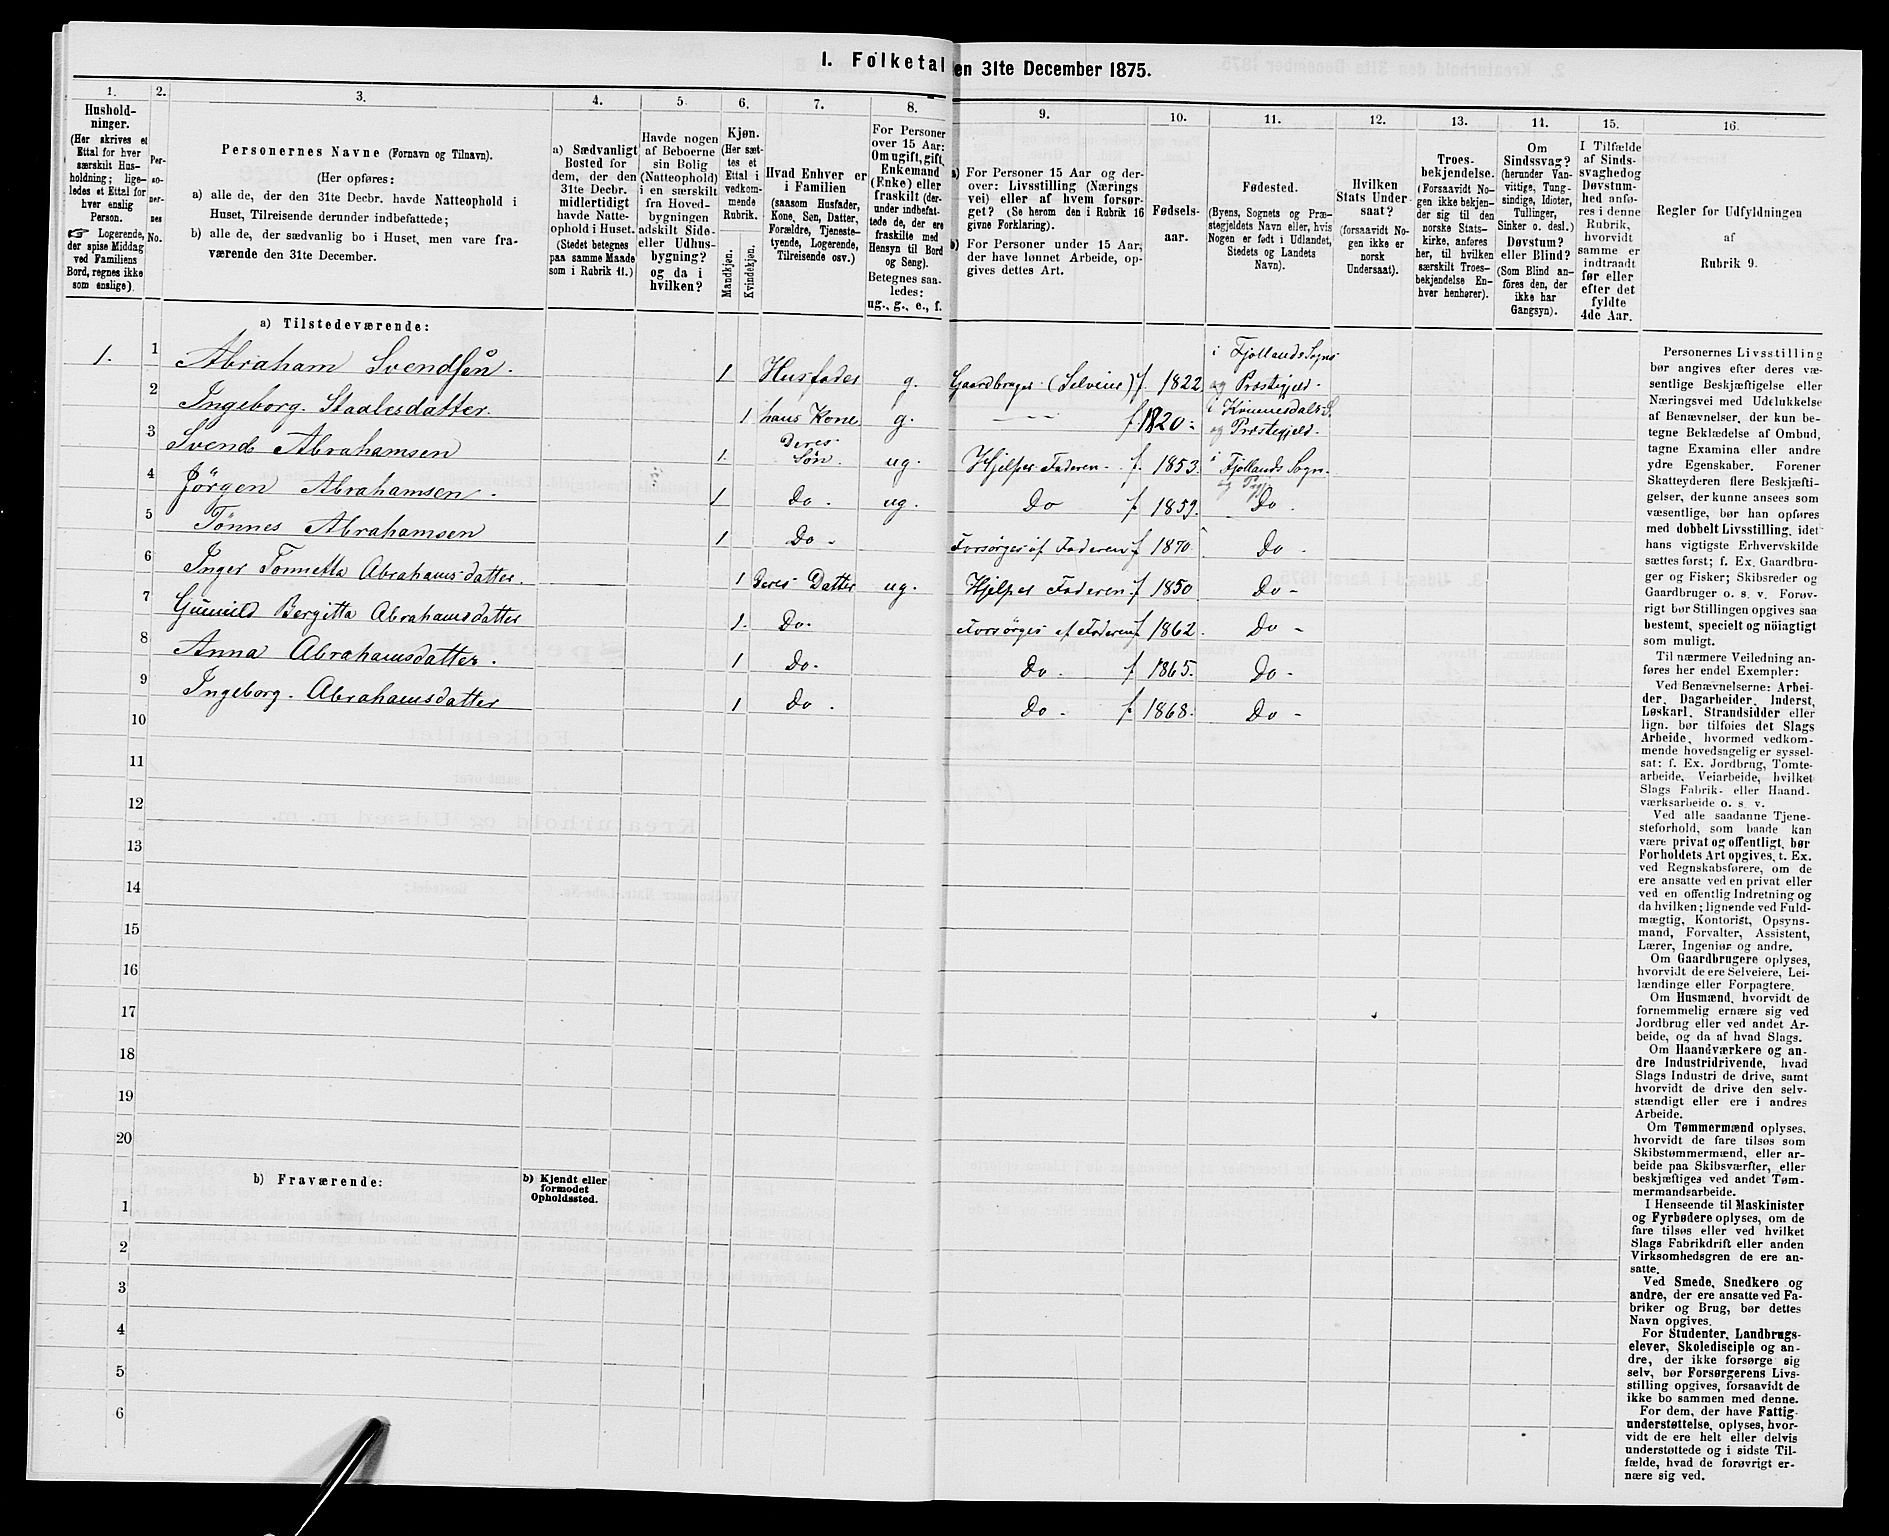 1. Folketal den 31te December 1875.
1. 2. 3. 4. 5. 6. 7. 8. 9. 10. 11. 12. 13. 14. 15. 16.
Hushold-
ninger.
(Her skrives et
Ettal for hver
særskilt Hus-
holdning; lige-
ledes et Ettal for
hver enslig
Person.
☞ Logerende,
der spise Middag
ved Familiens
Bord, regnes ikke
som enslige).
Per-
so-
ner-
nes
No.
Personernes Navne (Fornavn og Tilnavn).
(Her opføres:
a) alle de, der den 31te Decbr. havde Natteophold i
Huset, Tilreisende derunder indbefattede;
b) alle de, der sædvanlig bo i Huset, men vare fra-
værende den 31te December.
a) Sædvanligt
Bosted for
dem, der den
31te Decbr.
midlertidigt
havde Natte-
ophold i Huset.
(Stedet betegnes
paa samme Maade
som i Rubrik 11.)
Havde nogen
af Beboerne
sin Bolig
(Natteophold)
i en særskilt
fra Hoved-
bygningen
adskilt Side-
eller Udhus-
bygning?
og da i
hvilken?
Kjøn.
(Her sæt-
tes et
Ettal i
vedkom-
mende
Rubrik.
Mandkjøn.
Kvindekjøn.
Hvad Enhver er
i Familien
(saasom Husfader,
Kone, Søn, Datter,
Forældre, Tjeneste-
tyende, Logerende,
Tilreisende osv.)
For Personer
over 15 Aar:
Om ugift, gift,
Enkemand
(Enke) eller
fraskilt (der-
under indbefat-
tede de, der ere
fraskilte med
Hensyn til Bord
og Seng).
Betegnes saa-
ledes:
ug., g., e., f.
a) For Personer 15 Aar og der-
over: Livsstilling (Nærings
vei) eller af hvem forsør-
get? (Se herom den i Rubrik 16
givne Forklaring).
b) For Personer under 15 Aar,
der have lønnet Arbeide, op-
gives dettes Art.
Fødsels-
aar.
Fødested.
(Byens, Sognets og Præ-
stegjeldets Navn eller, hvis
Nogen er født i Udlandet,
Stedets og Landets
Navn).
Hvilken
Stats Under-
saat?
(forsaavidt No-
gen ikke er
norsk
Undersaat).
Troes-
bekjendelse.
(Forsaavidt No-
gen ikke bekjen-
der sig til den
norske Stats-
kirke, anføres
her, til hvilken
særskilt Troes-
bekjendelse En-
hver henhører).
Om
Sindssvag?
(herunder Van-
vittige, Tung-
sindige, Idioter,
Tullinger,
Sinker o. desl.)
Døvstum?
eller Blind?
(Som Blind an-
føres den, der
ikke har
Gangsyn).
I Tilfælde
af Sinds-
svaghed og
Døvstum-
hed anfø-
res i denne
Rubrik,
hvorvidt
samme er
indtraadt
før eller
efter det
fyldte
4de Aar.
Regler for Udfyldningen
af
Rubrik 9.
a) Tilstedeværende:
1. 1 Abraham Svendsen. 1 Husfader g. Gaardbruger (Selveier) f. 1822 i Fjollands Sogn og Præstegjeld.
2 Ingeborg. Staalesdatter. 1 hans Kone g. — f. 1820 i S. og Præstegjeld.
3 Svend Abrahamsen 1. Deres Søn. ug. Hjelper Faderen. f. 1853. i Fjollands Sogn. og Prgj.
4 Jörgen Abrahamsen. 1 Do. ug. Do f 1859. Do.
5 Tönnes Abrahamsen 1 Do. Forsørges af Faderen f 1870. Do.
6 Inger Tonnetta Abrahamsdatter. 1 Deres Datter ug. Hjelper Faderen. f 1850 Do
7 Gunuild Bergitta Abrahamsdatter 1. Do. Forsørges af Faderen f 1862. Do
8 Anna Abrahamsdatter. 1 Do. Do. f 1865. Do
9 Ingeborg. Abrahamsdatter 1 Do. Do. f 1868. Do
10
11
12
13
14
15
16
17
18
19
20
b) Fraværende:
b) Kjendt eller
formodet
Opholdssted.
1
2
3
4
5
6
Personernes Livsstilling
bør angives efter deres væ-
sentlige Beskjæftigelse eller
Næringsvei med Udelukkelse
af Benævnelser, der kun be-
tegne Beklædelse af Ombud,
tagne Examina eller andre
ydre Egenskaber. Forener
Skatteyderen flere Beskjæfti-
gelser, der kunne ansees som
væsentlige, bør han opføres
med dobbelt Livsstilling, idet
hans vigtigste Erhvervskilde
sættes først; f. Ex. Gaardbru-
ger og Fisker; Skibsreder og
Gaardbruger o. s. v. Forøv-
rigt bør Stillingen opgives saa
bestemt, specielt og nöiagtigt
som muligt.
Til nærmere Veiledning an-
føres her endel Exempler:
Ved Benævnelserne: Arbei-
der, Dagarbeider, Inderst,
Løskarl, Strandsidder eller
lign. bør tilføies det Slags
Arbeide, hvormed vedkom-
mende hovedsagelig er syssel-
sat: f. Ex. Jordbrug, Tomte-
arbeide, Veiarbeide, hvilket
Slags Fabrik- eller Haand-
værksarbeide o. s. v.
Ved alle saadanne Tjene-
steforhold, som baade kan
være privat og offentligt, bør
Forholdets Art opgives, t. Ex.
ved Regnskabsførere, om de
ere ansatte ved en privat eller
ved en offentlig Indretning og
da hvilken; lignende ved Fuld-
mægtig, Kontorist, Opsyns-
mand, Forvalter, Assistent,
Lærer, Ingeniør og andre.
Om Gaardbrugere oplyses,
hvorvidt de ere Selveiere, Lei-
lændinge eller Forpagtere.
Om Husmænd, hvorvidt de
fornemmelig ernære sig ved
Jordbrug eller ved andet Ar-
beide, og da af hvad Slags.
Om Haandværkere og an-
dre Industridrivende, hvad
Slags Industri de drive, samt
hvorvidt de drive den selv-
stændigt eller ere i andres
Arbeide.
Om Tømmermænd oplyses,
hvorvidt de fare tilsøs som
Skibstømmermænd, eller ar-
beide paa Skibsværfter, eller
beskjæftiges ved andet Tøm-
mermandsarbeide.
I Henseende til Maskinister
og Fyrbødere oplyses, om de
fare tilsøs eller ved hvilket
Slags Fabrikdrift eller anden
Virksomhedsgren de ere an-
satte.
Ved Smede, Snedkere og
andre, der ere ansatte ved Fa-
briker og Brug, bør dettes
Navn opgives.
For Studenter, Landbrugs-
elever, Skoledisciple og an-
dre, der ikke forsørge sig
selv, bør Forsørgerens Livs-
stilling opgives, forsaavidt de
ikke bo sammen med denne.
For dem, der have Fattig-
understøttelse, oplyses, hvor-
vidt de ere helt eller delvis
understøttede og i sidste Til-
fælde, hvad de forøvrigt er-
nære sig ved.